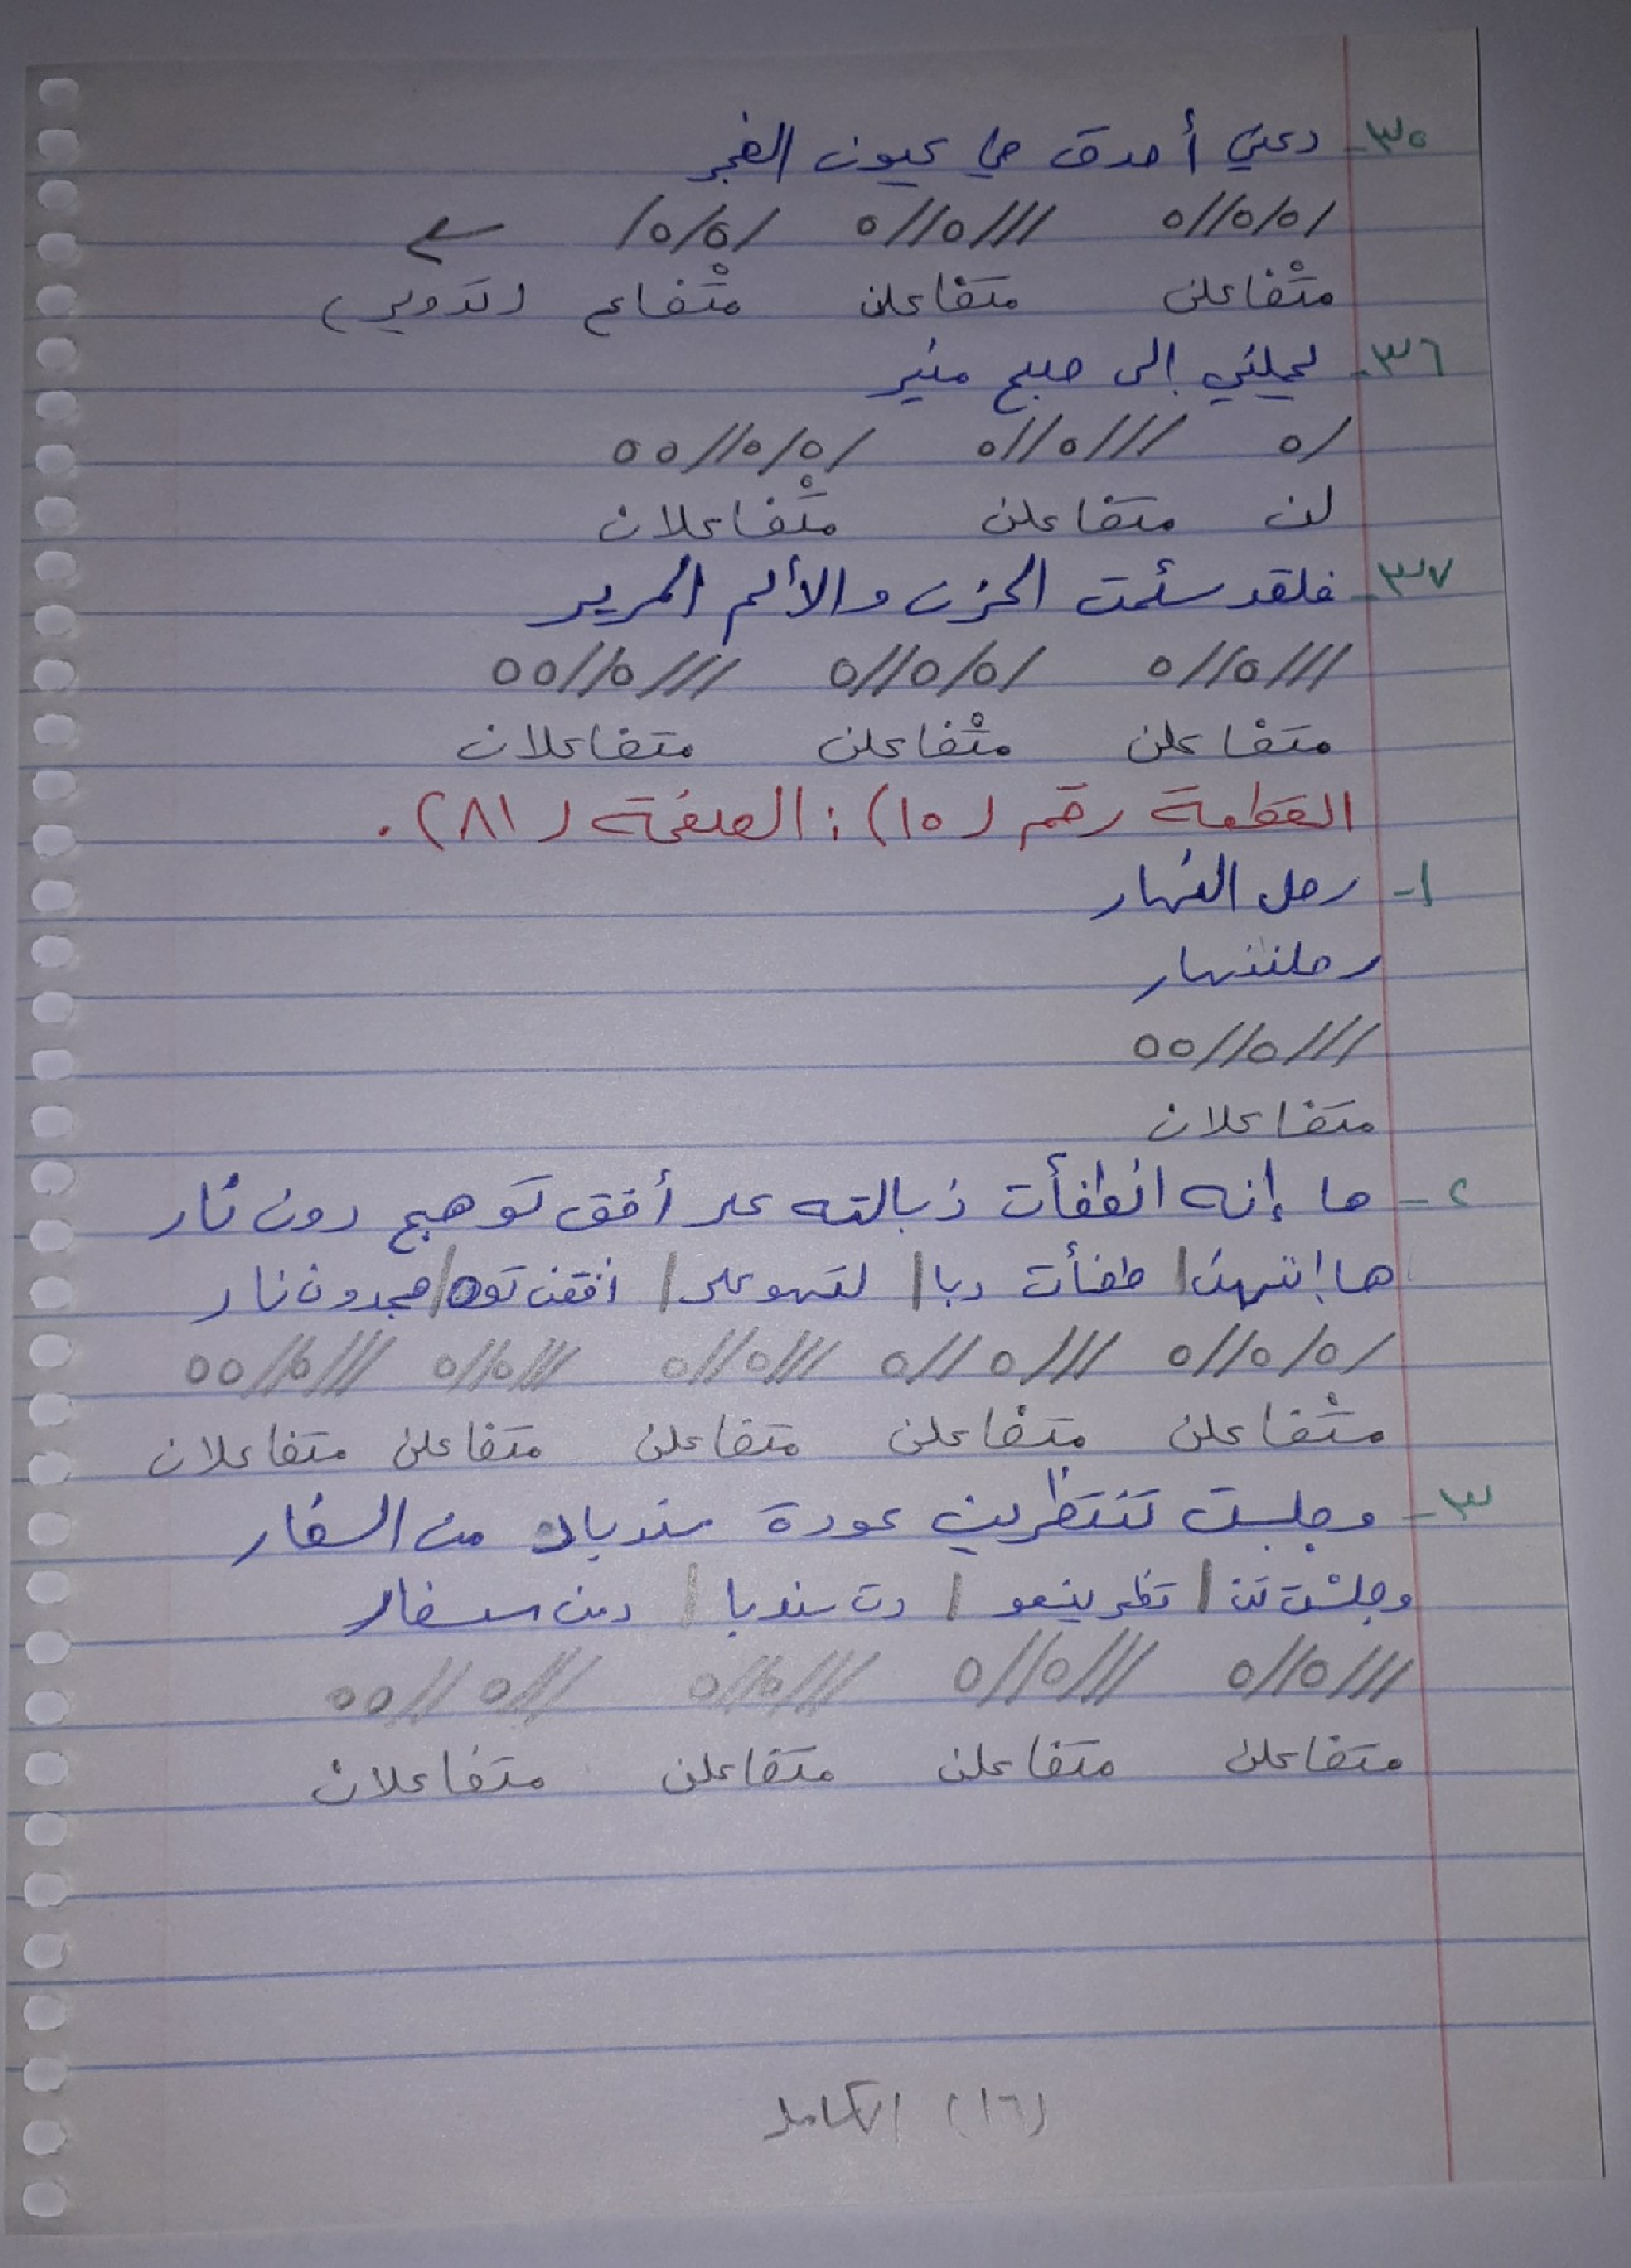 ٣٥- دعني أحدق في عيون الفجر
/٥/٥//٥ ///٥//٥ /٥/٥/
متْفاعلن متفاعلن متْفاع (تدوير)
٣٦- يحملني إلى صبح منير
/٥ ///٥//٥ /٥/٥//٥٥
لن متفاعلن متْفاعلان
٣٧- فلقد سئمت الحزن والألم المرير
///٥//٥ /٥/٥//٥ ///٥//٥٥
متفاعلن متْفاعلن متفاعلان
القطعة رقم (١٥): الصفحة (٨١).
١- رحل النهار
رحلننهار
///٥//٥٥
متفاعلان
٢- ها إنه انطفأت ذبالته على أفق توهج دون نار
ها إننهن | طفأت دبا | لتهو على | افقن توه | هجدون نار
/٥/٥//٥ ///٥//٥ ///٥//٥ ///٥//٥ ///٥//٥٥
متْفاعلن متفاعلن متفاعلن متفاعلن متفاعلان
٣- وجلست تنتظرين عودة سندباد من السفار
وجلست تن | تظرينعو | دت سندبا | دمن سسفار
///٥//٥ ///٥//٥ ///٥//٥ ///٥//٥٥
متفاعلن متفاعلن متفاعلن متفاعلان
(١٦) الكامل